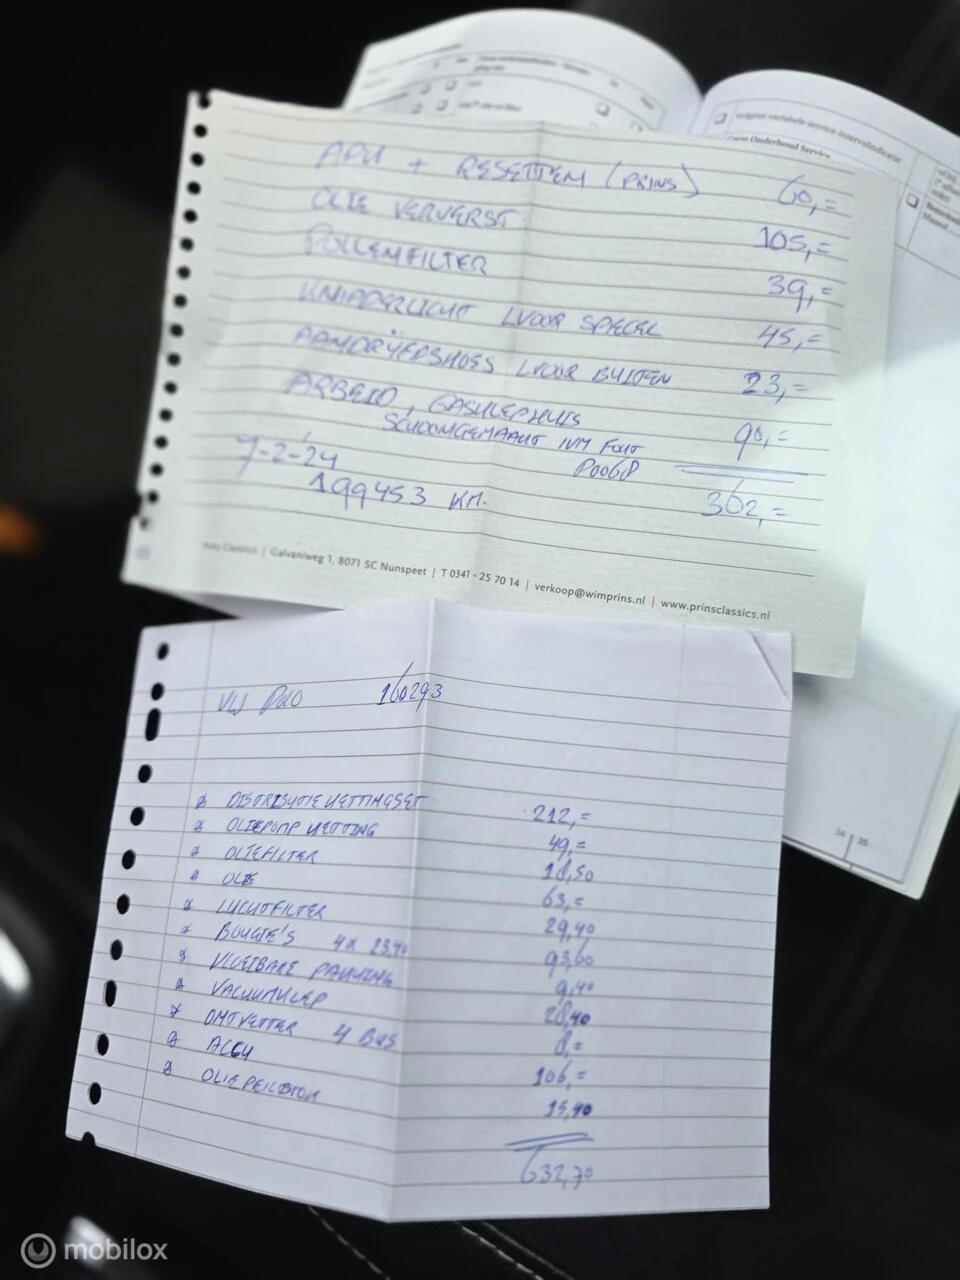 volgens variabele service-intervalindicatie
Onderhoud Service
APK + RESETTEN (PRINS) 60,=
OLIE VERVERST 105,=
POLLENFILTER 39,=
KNIPPERLICHT LVOOR SPIEGEL 45,=
AANDRIJFASHOES LVOOR BUITEN 23,=
ARBEID, GASKLEPHUIS
SCHOONGEMAAKT IVM FOUT 90,=
P0068
7-2-24 362,=
199453 KM.
Prins Classics | Galvaniweg 1, 8071 SC Nunspeet | T 0341 - 25 70 14 | verkoop@wimprins.nl | www.prinsclassics.nl
VW POLO 160293
DISTRIBUTIE KETTINGSET 212,=
OLIEPOMP KETTING 49,=
OLIEFILTER 18,50
OLIE 63,=
LUCHTFILTER 29,40
BOUGIE'S 4x 23,40 93,60
VLOEIBARE PAKKING 9,40
VACUUMKLEP 28,40
ONTVETTER 4 BUS 8,=
ACCU 106,=
OLIEPEILSTOK 15,40
632,70
34 | 35
mobilox